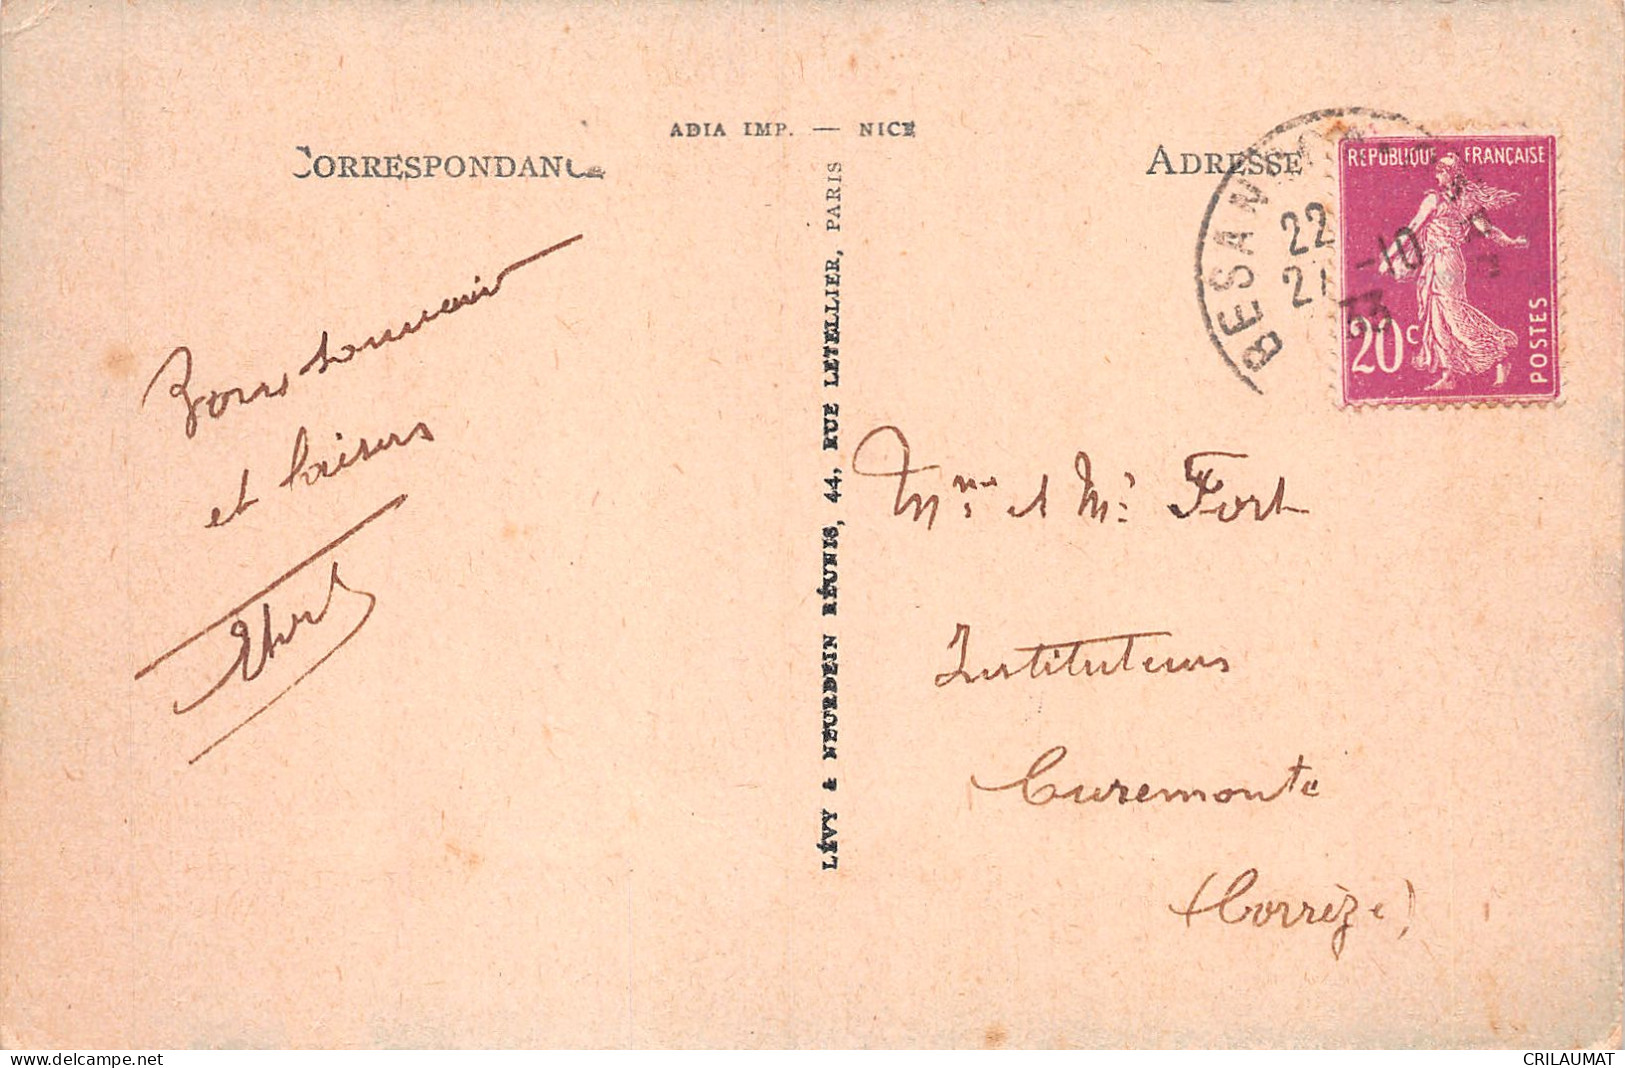 ADIA IMP. — NICE
CORRESPONDANCE
ADRESSE
RÉPUBLIQUE FRANÇAISE
20c
POSTES
BESANÇON
22
21 -10
33
Bons souvenir
et baisers
LÉVY & NEURDEIN RÉUNIS, 44, RUE LETELLIER, PARIS
Mme et Mr Fort
Instituteurs
Curemonte
(Corrèze)
delcampe.net
CRILAUMAT